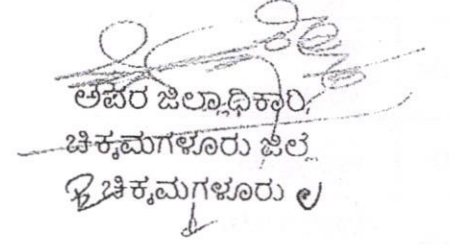 ಅಪರ ಜಿಲ್ಲಾಧಿಕಾರಿ,
ಚಿಕ್ಕಮಗಳೂರು ಜಿಲ್ಲೆ
ಚಿಕ್ಕಮಗಳೂರು